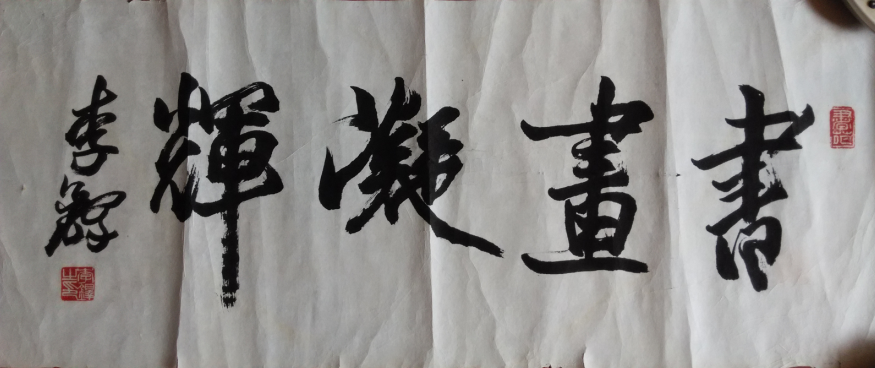 書畫凝輝
李